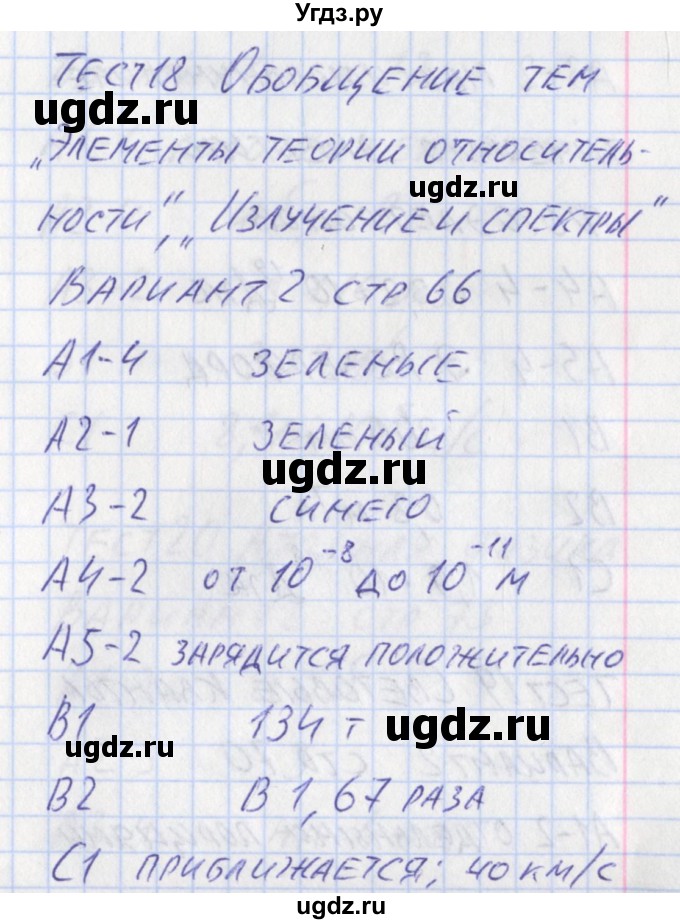 Угдз.ру
ТЕСТ 18 ОБОБЩЕНИЕ ТЕМ
ugdz.ru
„ЭЛЕМЕНТЫ ТЕОРИИ ОТНОСИТЕЛЬ-
ugdz.ru
НОСТИ“, „ИЗЛУЧЕНИЕ И СПЕКТРЫ“
ВАРИАНТ 2 СТР 66
ugdz.ru
А1-4 ЗЕЛЕНЫЕ
ugdz.ru
А2-1 ЗЕЛЕНЫЙ
ugdz.ru
А3-2 СИНЕГО
ugdz.ru
А4-2 ОТ 10⁻⁸ ДО 10⁻¹¹ М
ugdz.ru
А5-2 ЗАРЯДИТСЯ ПОЛОЖИТЕЛЬНО
В1 134 Т
ugdz.ru
ugdz.ru
В2 В 1,67 РАЗА
ugdz.ru
С1 ПРИБЛИЖАЕТСЯ; 40 КМ/С
ugdz.ru
ugdz.ru